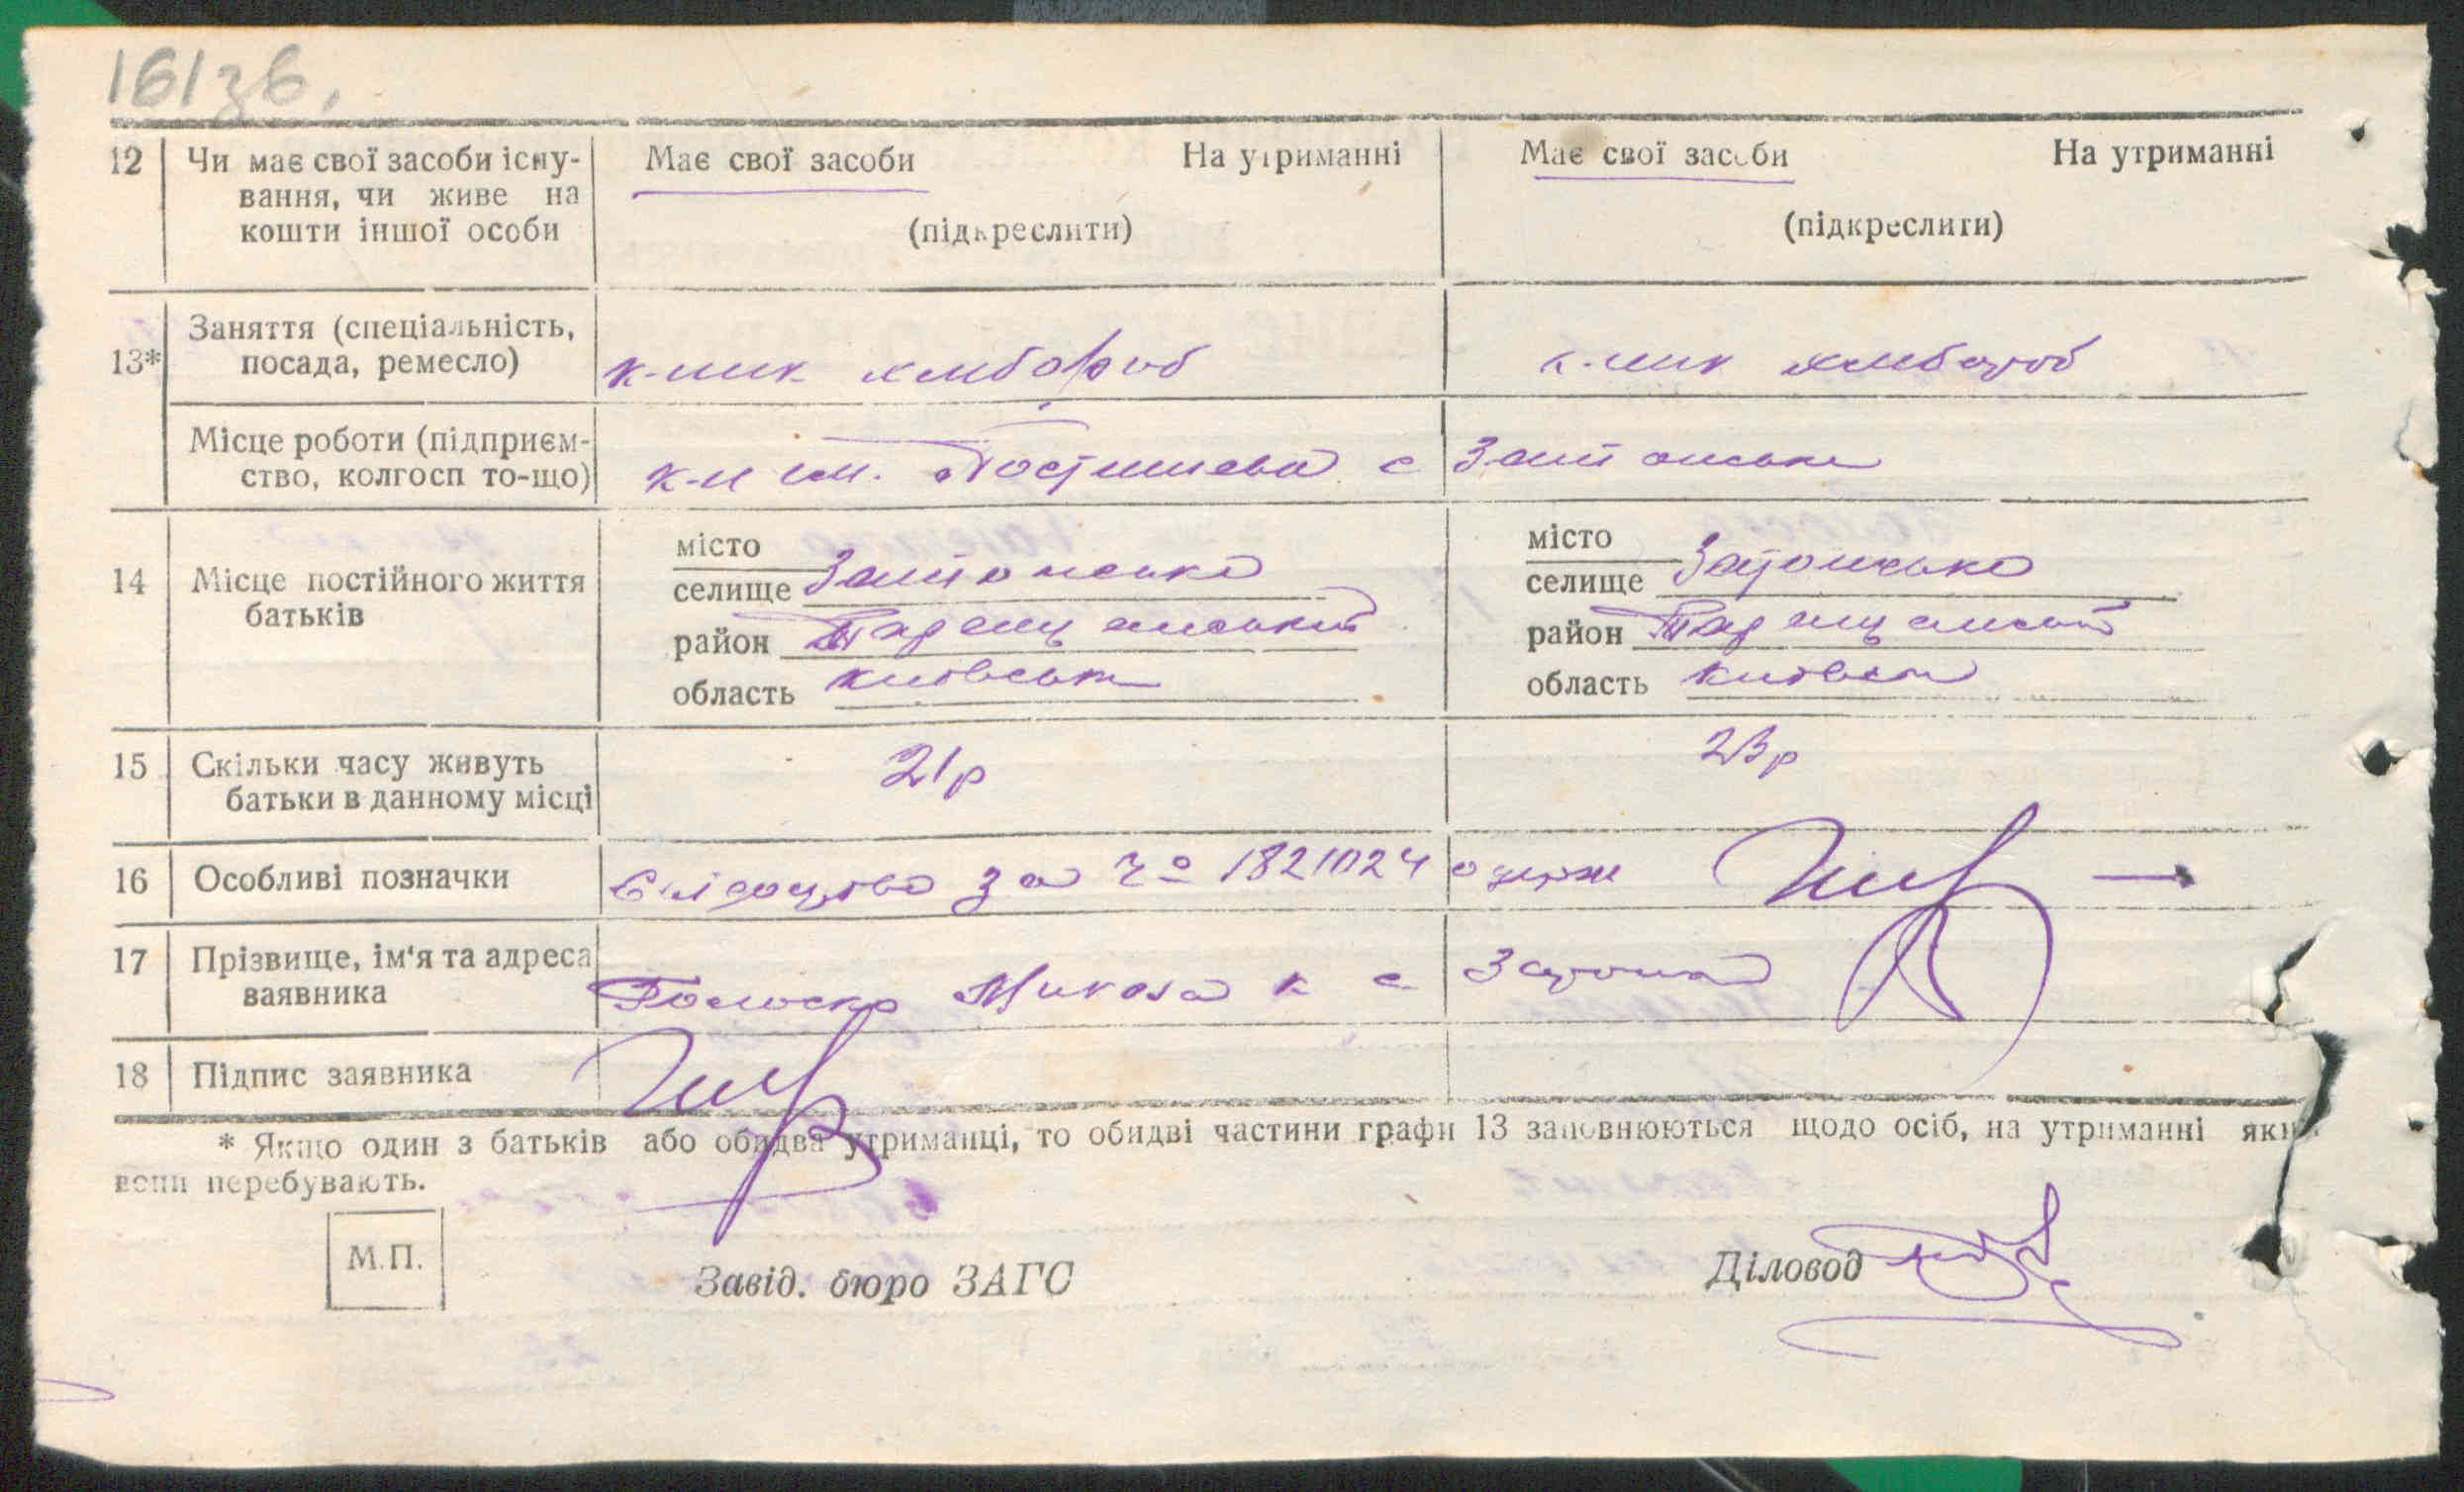 161зв.
12 Чи має свої засоби існу- Має свої засоби На утриманні Має свої засоби На утриманні
вання, чи живе на
кошти іншої особи (підкреслити) (підкреслити)
Заняття (спеціальність,
13* посада, ремесло) к-ник хлібороб к-ник хлібороб
Місце роботи (підприєм-
ство, колгосп то-що) к-п ім. Постишева с Затонське
місто місто
14 Місце постійного життя селище Затонське селище Затонське
батьків район Таращанський район Таращанськ
область київська область київська
15 Скільки часу живуть 21р 23р
батьки в данному місці
16 Особливі позначки Свідоцтво за № 1821024 одерж
17 Прізвище, ім'я та адреса
заявника Микола с
18 Підпис заявника
* Якщо один з батьків або обидва утриманці, то обидві частини графи 13 заповнюються щодо осіб, на утриманні яких
вони перебувають.
М.П.
Завід. бюро ЗАГС Діловод